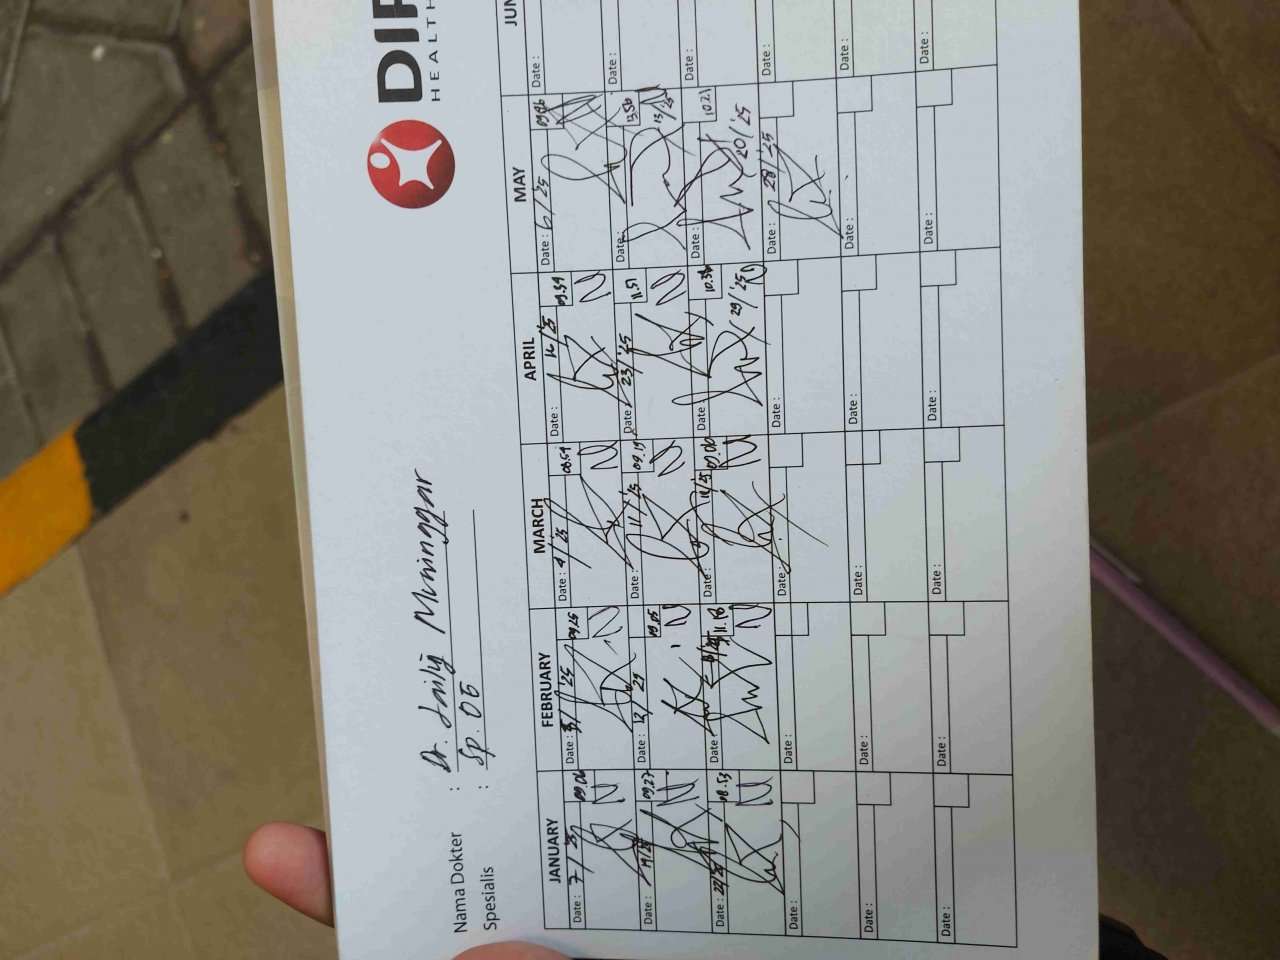 HEALTH
Nama Dokter :
Muninggar
Spesialis : Sp. OG
JANUARY FEBRUARY MARCH APRIL MAY JUN
Date : 7/ 09.06 Date : 5/'25 09.25 Date : 4/'25 08.59 Date : 16/'25 09.59 Date : 6/'25 Date :
Date : 09.27 Date : 12/ 09.05 Date : 11/'25 09.19 Date : 23/'25 11.51 Date : 13.56 13/'25 Date :
Date : 22/25 08.53 Date : 11.18 Date : 18/25 09.06 Date : 10.38 29/'25 Date : 10.21 20/'25 Date :
Date : Date : Date : Date : Date : 28/'25 Date :
Date : Date : Date : Date : Date : Date :
Date : Date : Date : Date : Date : Date :